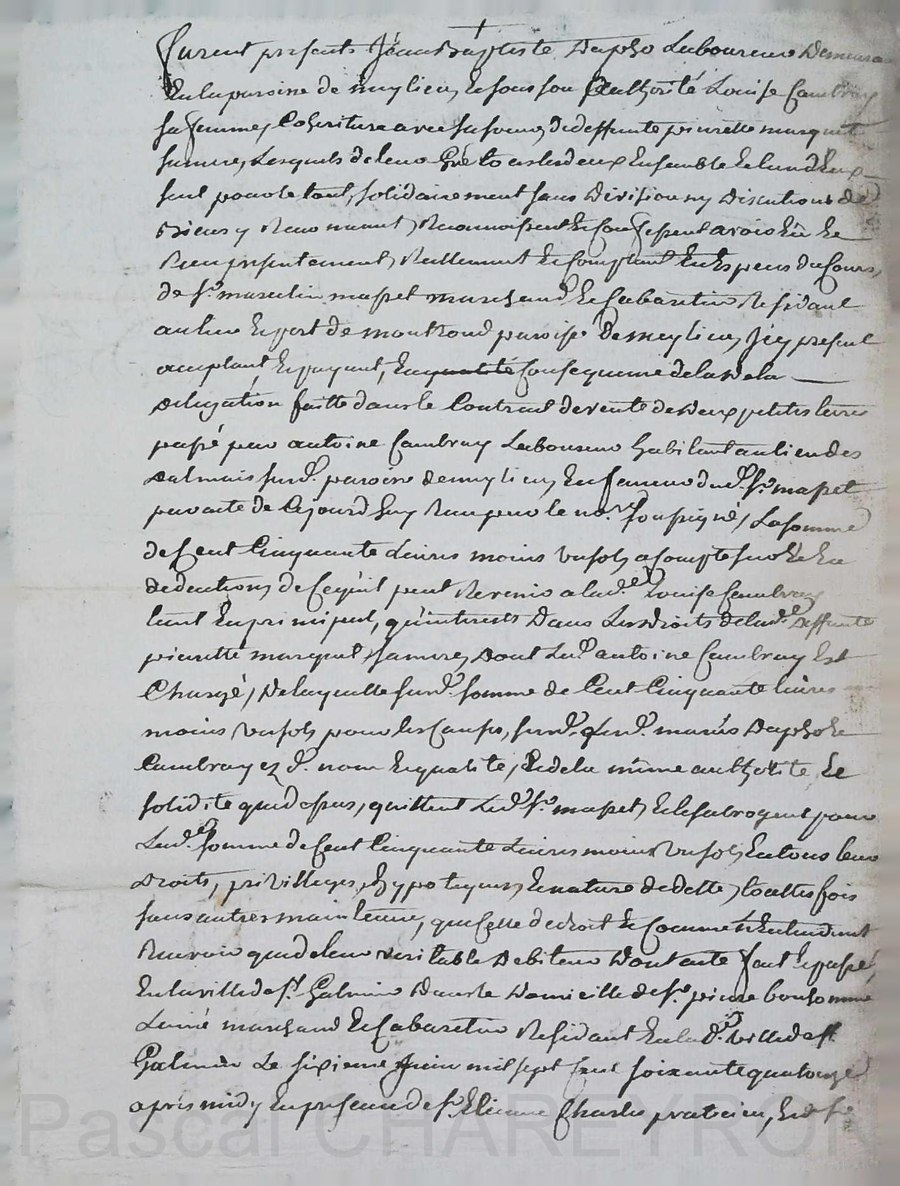 furent présents Jean Baptiste Dapzo Laboureur Demeurant
En la paroisse de meylieu, Et sous son Authorité Louise Cambray
sa femme, Coheritiere avec sa soeur, de deffunte pierrette marquet
sa mere, Lesquels de leur Gré tous les deux Ensemble Et l'un d'Eux
seul pour le tout, solidairement sans Division ny Discution de
Biens y Renonceant, Reconnoissent Et Confessent avoir Eu Et
Receu présentement, Reellement Et Comptant En Especes du Cours,
de sr. marcelin masset marchand Et Cabaretier Résidant
au lieu Et port de montrond paroisse De meylieu, Icy présent
acceptant Et payant, En qualité Conséquence de la De la
Delegation faitte dans le Contract de vente de Deux petites terres
passé par antoine Cambray Laboureur habitant au lieu des
Dalmais surd. paroisse de meylieu, En faveur dud. sr. masset
par acte de Cejourd'huy Reçu par le nore. soussigné, La somme
de Cent Cinquante Livres moins un sols, a compte sur Et En
deduction, de Ce qu'il peut Revenir a lad. Louise Cambray
tant En principal, qu'interests Dans Les droits de lad. Deffunte
pierrette marquet, sa mere, Dont Led. antoine Cambray Est
Chargé, De laquelle susd. somme de Cent Cinquante livres
moins un sols pour les Causes, susd. Lesd. mariés Dapzo Et
Cambray ez d. nom Et qualité, Et de la même authorité, Et
solidité que dessus, quittent Led. sr. masset, Et le subrogent pour
Lad. somme de Cent Cinquante Livres moins un sols, En tous leurs
Droits, privilleges, hypoteques, Et nature de dette, touttes fois
sans autres maintenue, que Celle de droit Et Comme s'Entendent
Recevoir que de leur veritable Debiteur Dont acte fait Et passé,
En la ville de st. Galmier Dans le Domicille de sr. pierre bonhomme
L'ainé marchand Et Cabaretier Résidant En lad. ville de st.
Galmier Le sixieme Juin mil sept Cent soixante quatorze
après midy En présence de sr. Etienne Charles praticien, Et de sr.
Pascal CHAREYRON